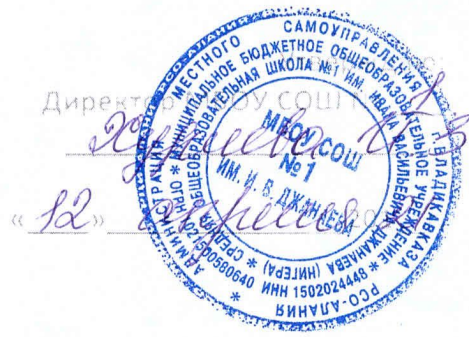 Директор МБОУ СОШ №1
« 12 » апреля 20
АДМИНИСТРАЦИЯ МЕСТНОГО САМОУПРАВЛЕНИЯ Г. ВЛАДИКАВКАЗА РСО-АЛАНИЯ
МУНИЦИПАЛЬНОЕ БЮДЖЕТНОЕ ОБЩЕОБРАЗОВАТЕЛЬНОЕ УЧРЕЖДЕНИЕ
СРЕДНЯЯ ОБЩЕОБРАЗОВАТЕЛЬНАЯ ШКОЛА №1 ИМ. ИВАНА ВАСИЛЬЕВИЧА ДЖАНАЕВА (НИГЕРА)
ИНН 1502024448
МБОУ СОШ
№ 1
ИМ. И. В. ДЖАНАЕВА